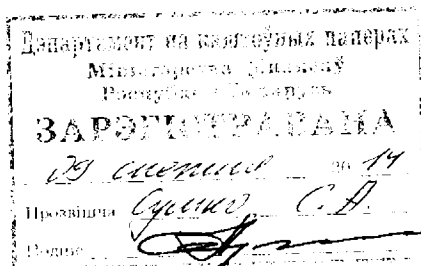 Дэпартамент па каштоўных паперах
Міністэрства фінансаў
Рэспублікі Беларусь
ЗАРЭГІСТРАВАНА
29 20 14
Прозвішча С. А.
Подпіс